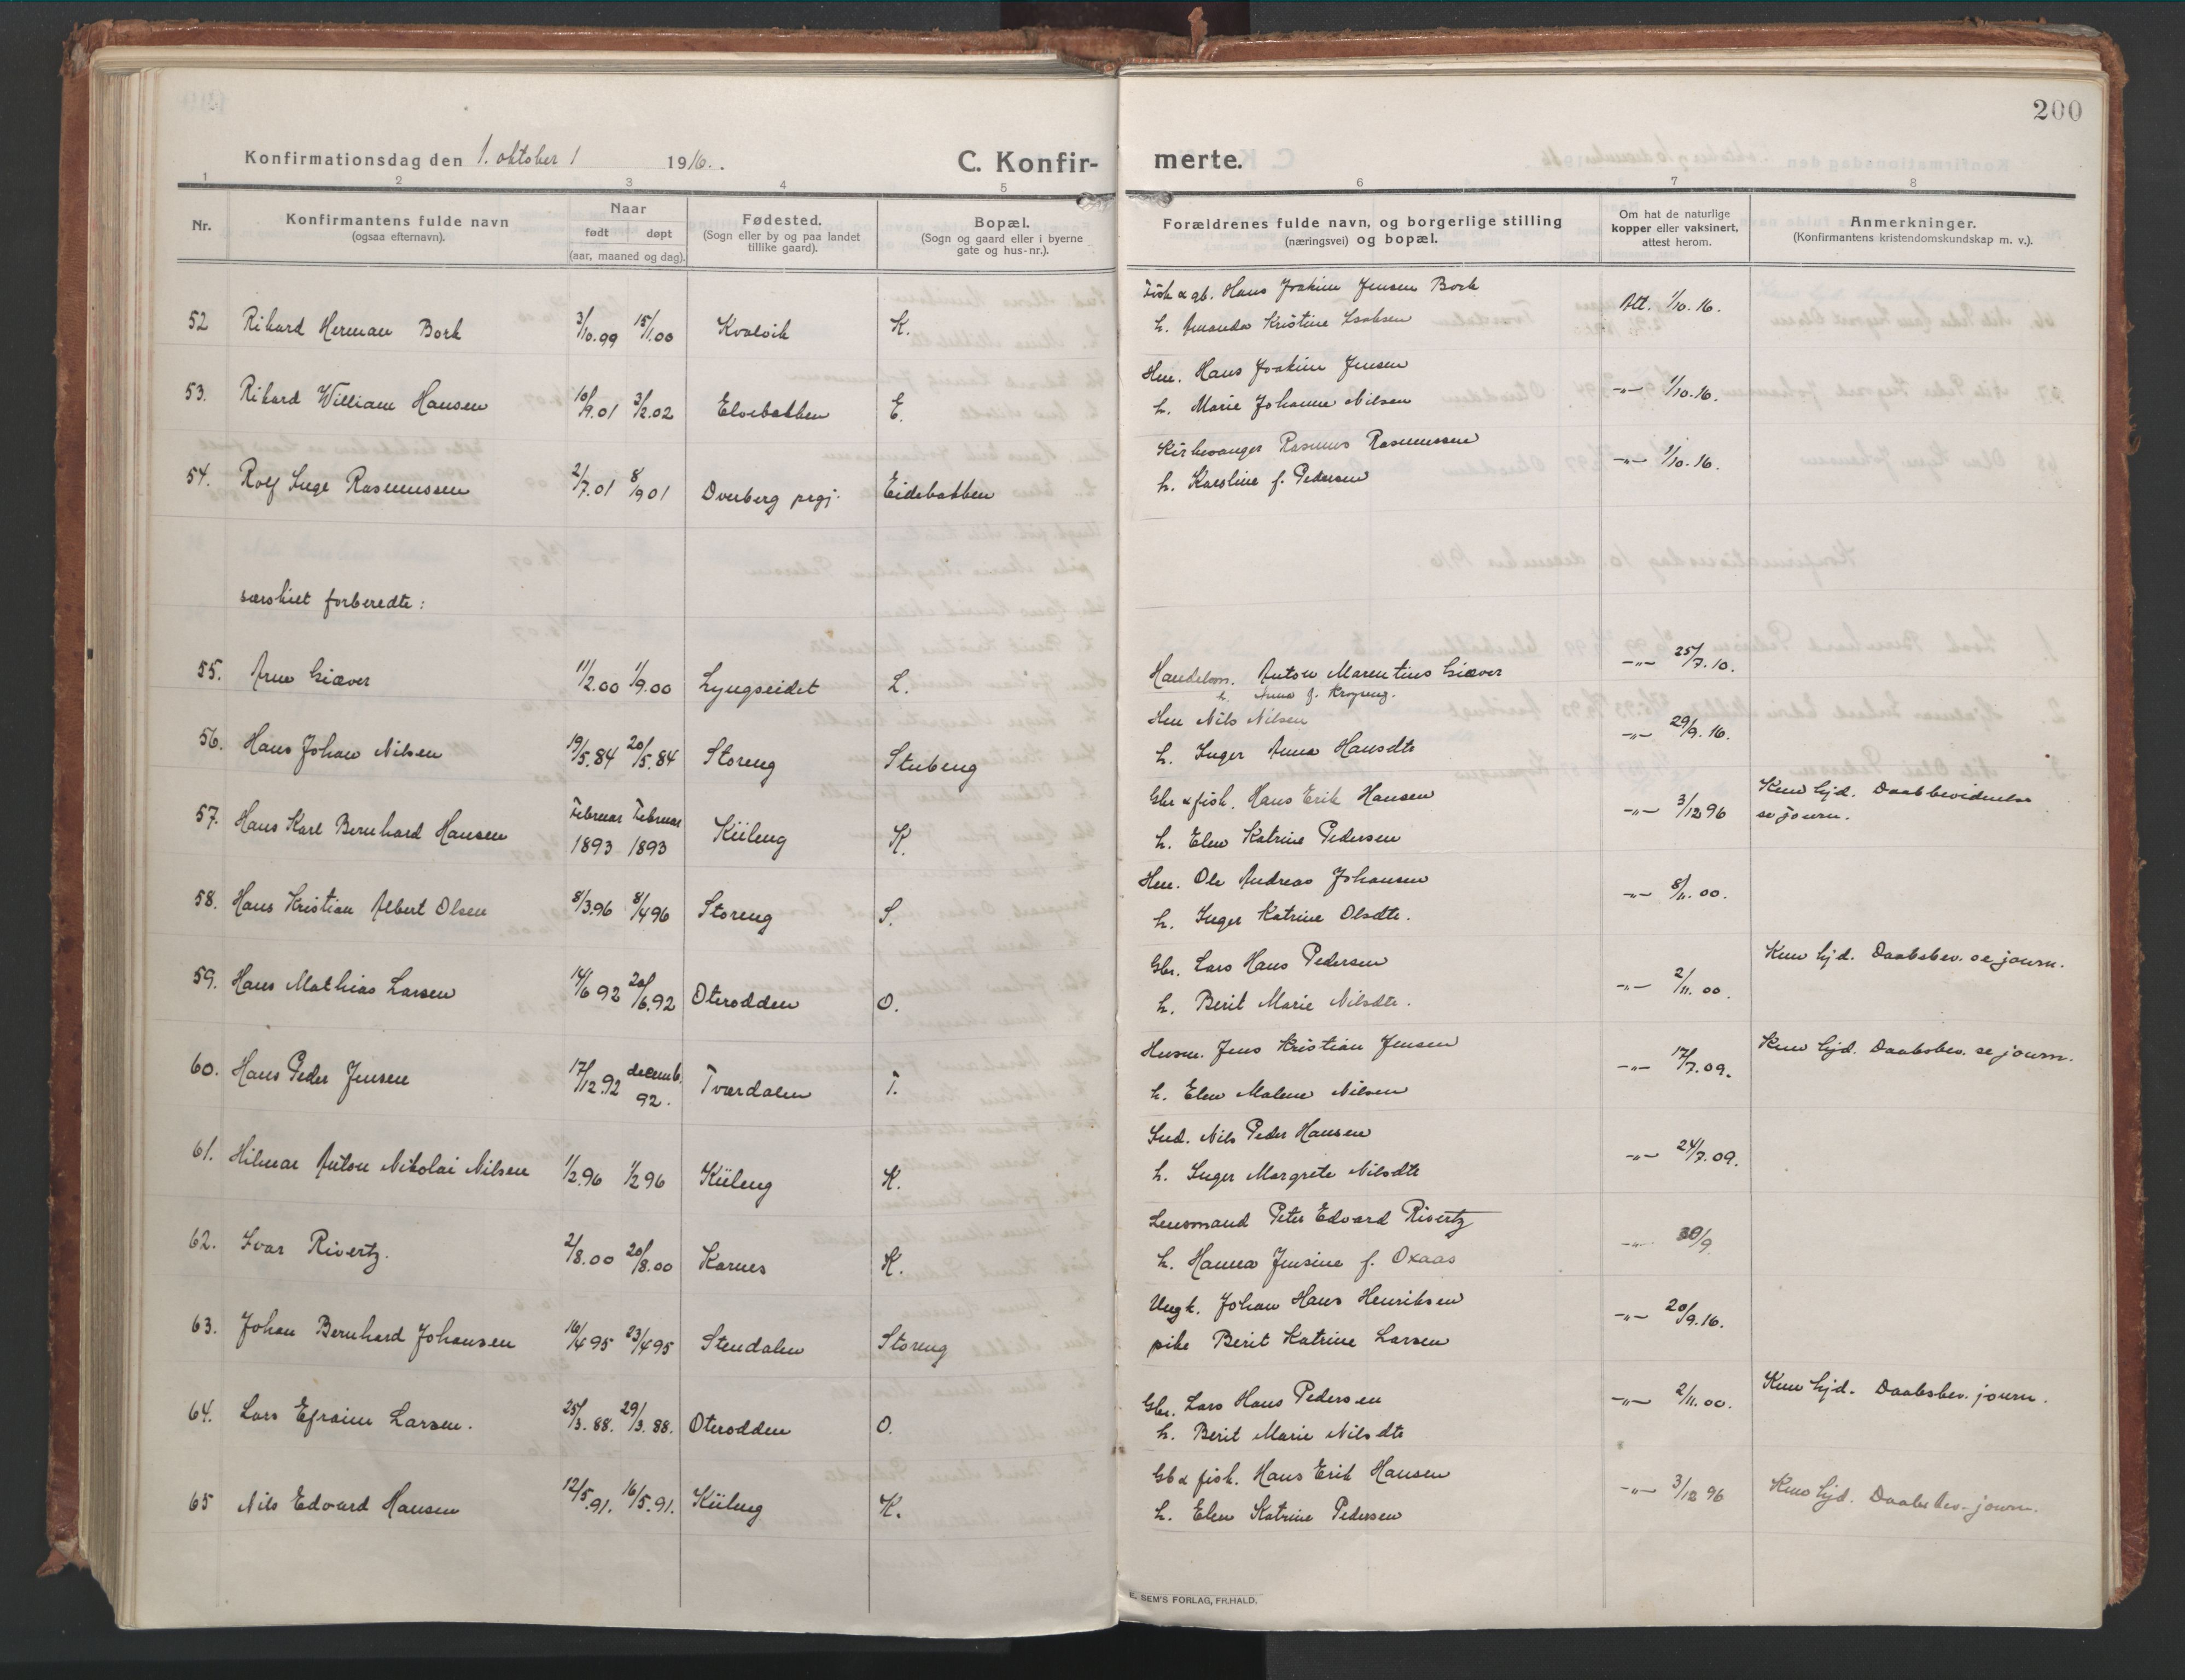 200
Konfirmationsdag den 1. oktober 1916.
C. Konfirmerte.
1 2 3 4 5 6 7 8
Nr.
Konfirmantens fulde navn
(ogsaa efternavn).
Naar
født døpt
(aar, maaned og dag).
Fødested.
(Sogn eller by og paa landet
tillike gaard).
Bopæl.
(Sogn og gaard eller i byerne
gate og hus-nr.).
Forældrenes fulde navn, og borgerlige stilling
(næringsvei) og bopæl.
Om hat de naturlige
kopper eller vaksinert,
attest herom.
Anmerkninger.
(Konfirmantens kristendomskundskap m. v.).
Fisk & gb. Hans Joakim Jensen Bork
52 Rikard Herman Bork 3/10.99 15/1.00 Kvalvik K. h. Amanda Kristine Isaksen Att. 1/10.16.
Hm. Hans Joakim Jensen
53. Rikard William Hansen 10/9.01 3/2.02 Elvebakken E. h. Marie Johanne Nilsen -"- 1/10.16.
Kirkesanger Rasmus Rasmussen
54. Rolf Inge Rasmussen 2/7.01 8/9 01 Dverberg prgj. Eidebakken h. Karoline f. Pedersen -"- 1/10.16.
særskilt forberedte:
55. Arne Giæver 11/2.00 1/9.00 Lyngseidet L. Handelsm. Anton Marentius Giæver -"- 25/7.10.
h. Anna f.
Hm Nils Nilsen
56. Hans Johan Nilsen 19/5.84 20/5.84 Storeng Stubeng h. Inger Anna Hansdtr -"- 29/9.16.
Gbr & fisk. Hans Erik Hansen
57. Hans Karl Bernhard Hansen Februar 1893 Februar 1893 Kiileng K. h. Elen Katrine Pedersen -"- 3/12 96 Kun hjd. Daabbevidnelse
se journ.
Hm. Ole Andreas Johansen
58. Hans Kristian Albert Olsen 8/3.96 8/4 96 Storeng S. h. Inger Katrine Olsdtr. -"- 8/11.00.
Gbr. Lars Hans Pedersen
59. Hans Mathias Larsen 14/6 92 20/6.92 Oterodden O. h. Berit Marie Nilsdtr. -"- 2/11.00. Kun hjd. Daabsbev. se journ.
Husm. Jens Kristian Jensen
60. Hans Peder Jensen 17/12.92 decemb. 92. Tværdalen T. h. Elen Malene Nilsen -"- 17/7.09. Kun hjd. Daabsbev. se journ.
Ind. Nils Peder Hansen
61. Hilmar Anton Nikolai Nilsen 1/2.96 1/2 96 Kiileng K. h. Inger Margrete Nilsdtr -"- 24/7.09.
Lensmand Peter Edvard Rivertz
62. Ivar Rivertz. 2/8.00 20/8.00 Karnes K. h. Hanna Jensine f. Oxaas -"- 30/9.
Ungk. Johan Hans Henriksen
63. Johan Bernhard Johansen 16/4 95 23/4 95 Stendalen Storeng pike Berit Katrine Larsen -"- 20/9.16.
Gbr. Lars Hans Pedersen
64. Lars Efraim Larsen. 25/3.88. 29/3.88. Oterodden O. h. Berit Marie Nilsdtr -"- 2/11.00. Kun hjd. Daabsbev. journ.
Gb & fisk. Hans Erik Hansen
65 Nils Edvard Hansen 12/5.91. 16/5.91. Kiileng K. h. Elen Katrine Pedersen -"- 3/12 96 Kun hjd. Daabsbev. journ.
E. SEM'S FORLAG, FR.HALD.